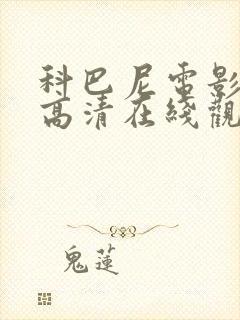 科巴尼電影
高清在綫觀
鬼蓮